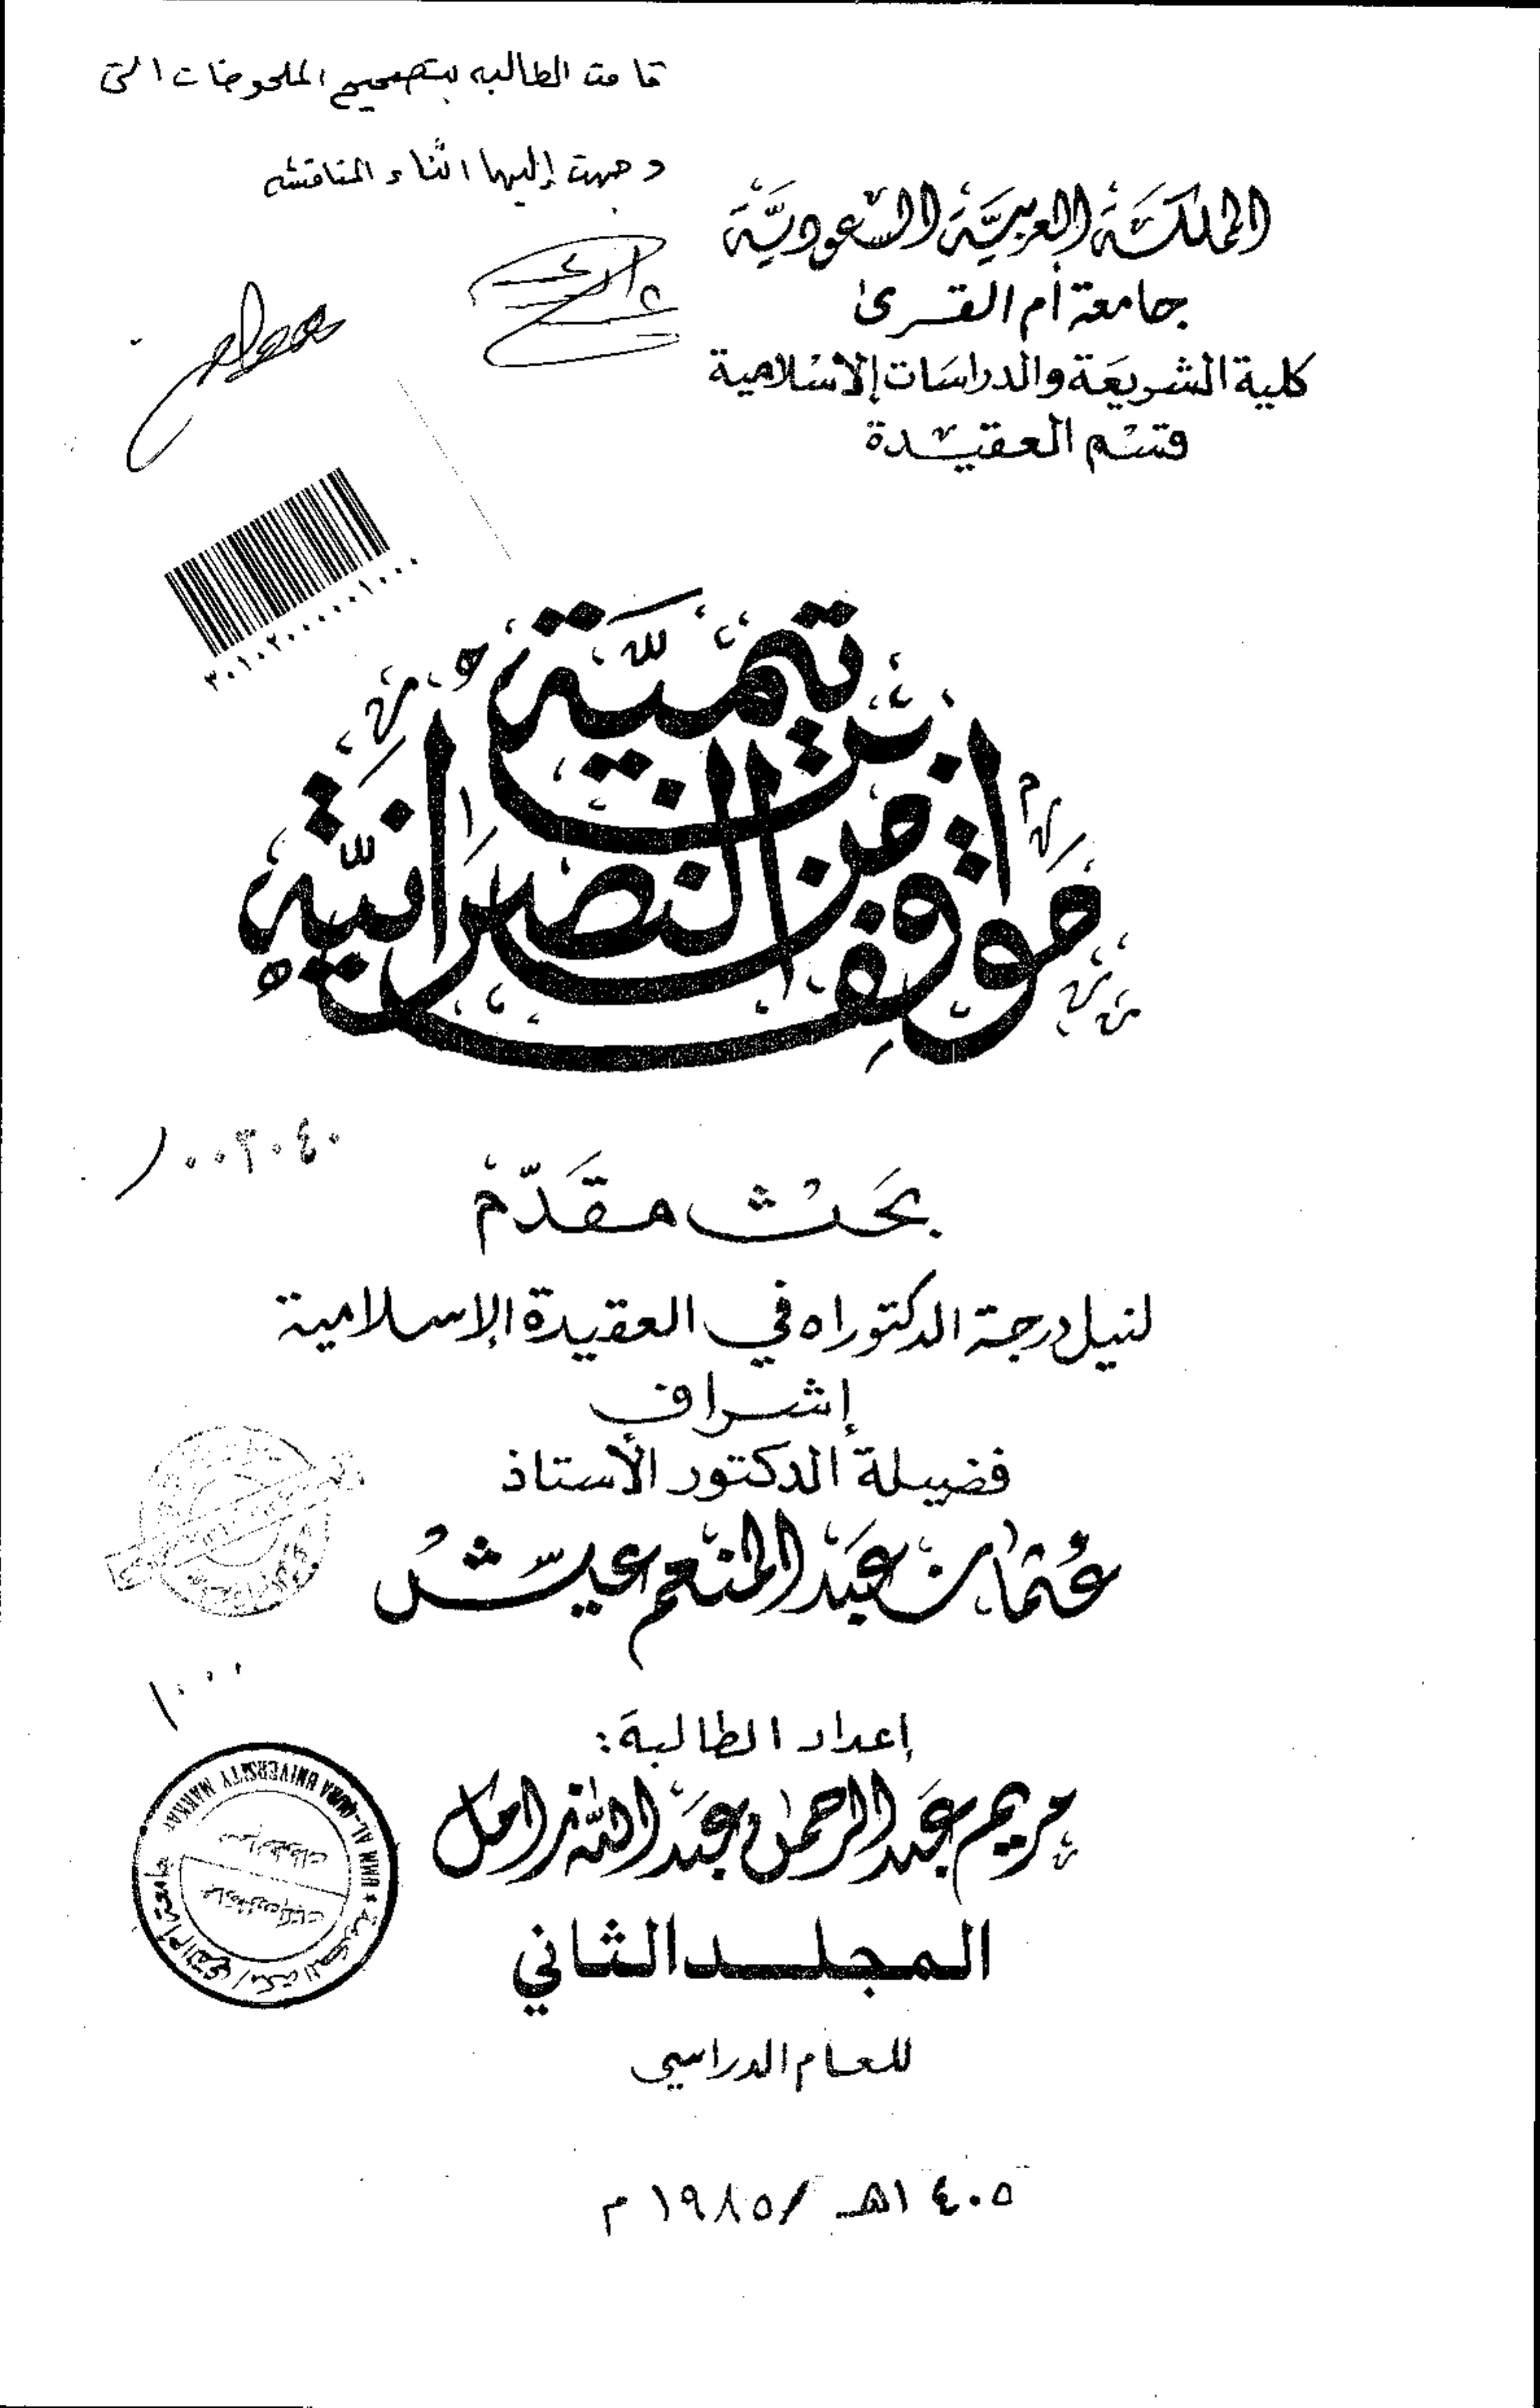 قامت الطالبه بتصحيح الملحوظات التى
وجهت إليها اثناء المناقشه
المملكة العربية السعودية
جامعة أم القرى
كلية الشريعة والدراسات الإسلامية
قسم العقيدة
٣٠١٠٢٠٠٠٠٠١٠٠٠
موقف ابن تيمية
من النصرانية
٠٠٢٠٤٠
بحث مقدم
لنيل درجة الدكتوراه في العقيدة الإسلامية
إشراف
فضيلة الدكتور الأستاذ
عثمان عبد المنعم عيش
١٠٠٠
إعداد الطالبة:
مريم عبد الرحمن عبد الله زامل
UMM AL-QURA UNIVERSITY MAKKAH
جامعة أم القرى / مكة المكرمة
المجلد الثاني
للعام الدراسي
١٤٠٥هـ / ١٩٨٥م